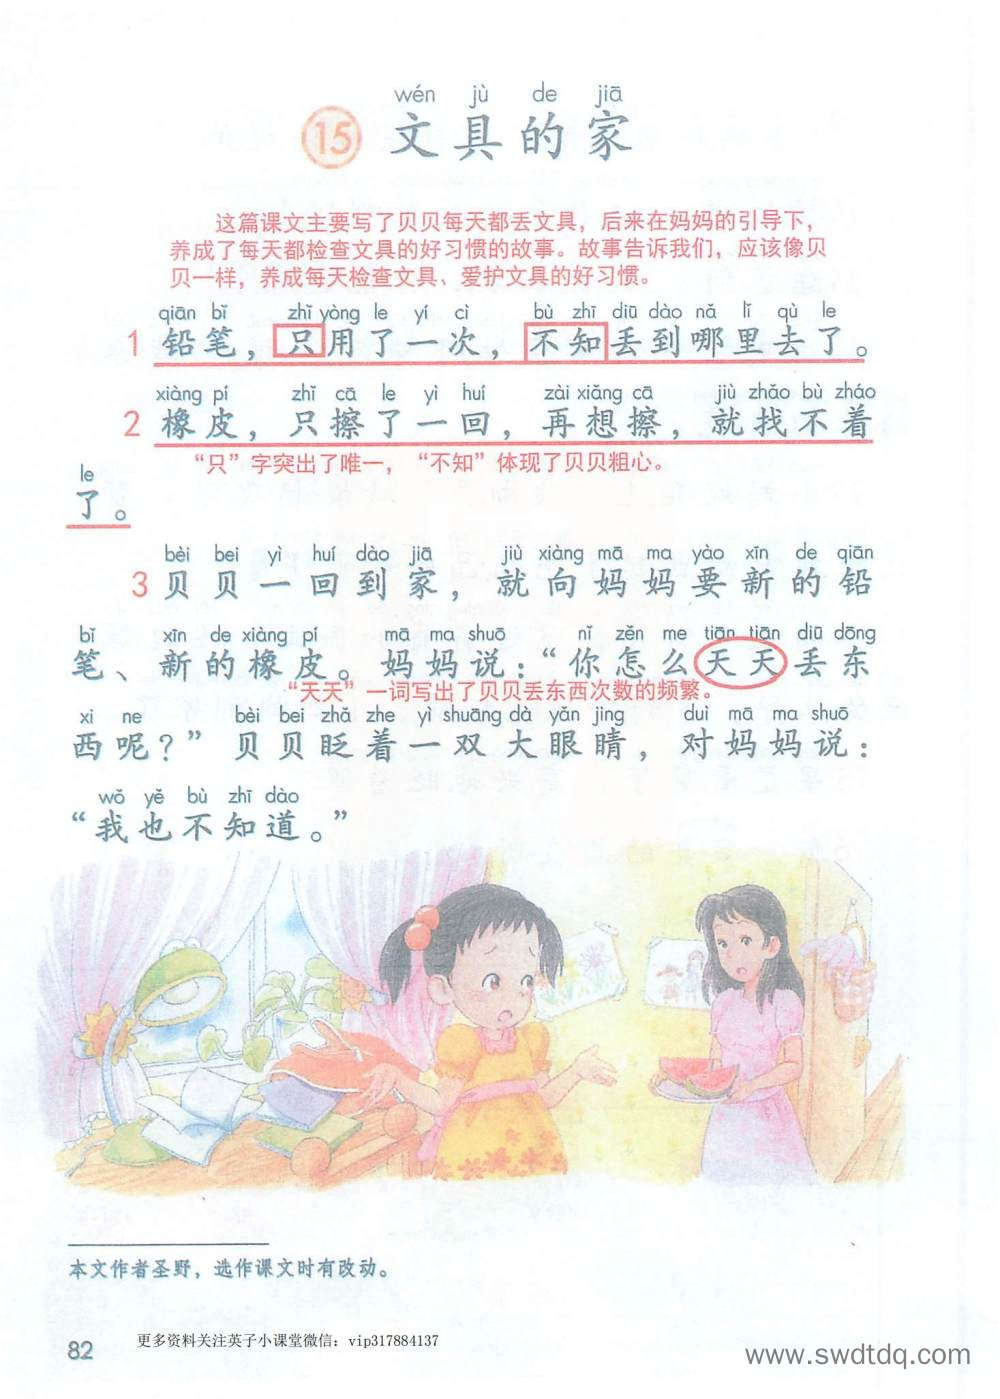 wén jù de jiā
15 文具的家
这篇课文主要写了贝贝每天都丢文具，后来在妈妈的引导下，
养成了每天都检查文具的好习惯的故事。故事告诉我们，应该像贝
贝一样，养成每天检查文具、爱护文具的好习惯。
qiān bǐ zhǐ yòng le yí cì bù zhī diū dào nǎ lǐ qù le
1 铅笔，只用了一次，不知丢到哪里去了。
xiàng pí zhǐ cā le yì huí zài xiǎng cā jiù zhǎo bù zháo
2 橡皮，只擦了一回，再想擦，就找不着
“只”字突出了唯一，“不知”体现了贝贝粗心。
le
了。
bèi bei yì huí dào jiā jiù xiàng mā ma yào xīn de qiān
3 贝贝一回到家，就向妈妈要新的铅
bǐ xīn de xiàng pí mā ma shuō nǐ zěn me tiān tiān diū dōng
笔、新的橡皮。妈妈说：“你怎么天天丢东
“天天”一词写出了贝贝丢东西次数的频繁。
xi ne bèi bei zhǎ zhe yì shuāng dà yǎn jing duì mā ma shuō
西呢？”贝贝眨着一双大眼睛，对妈妈说：
wǒ yě bù zhī dào
“我也不知道。”
本文作者圣野，选作课文时有改动。
82
更多资料关注英子小课堂微信：vip317884137
www.swdtdq.com